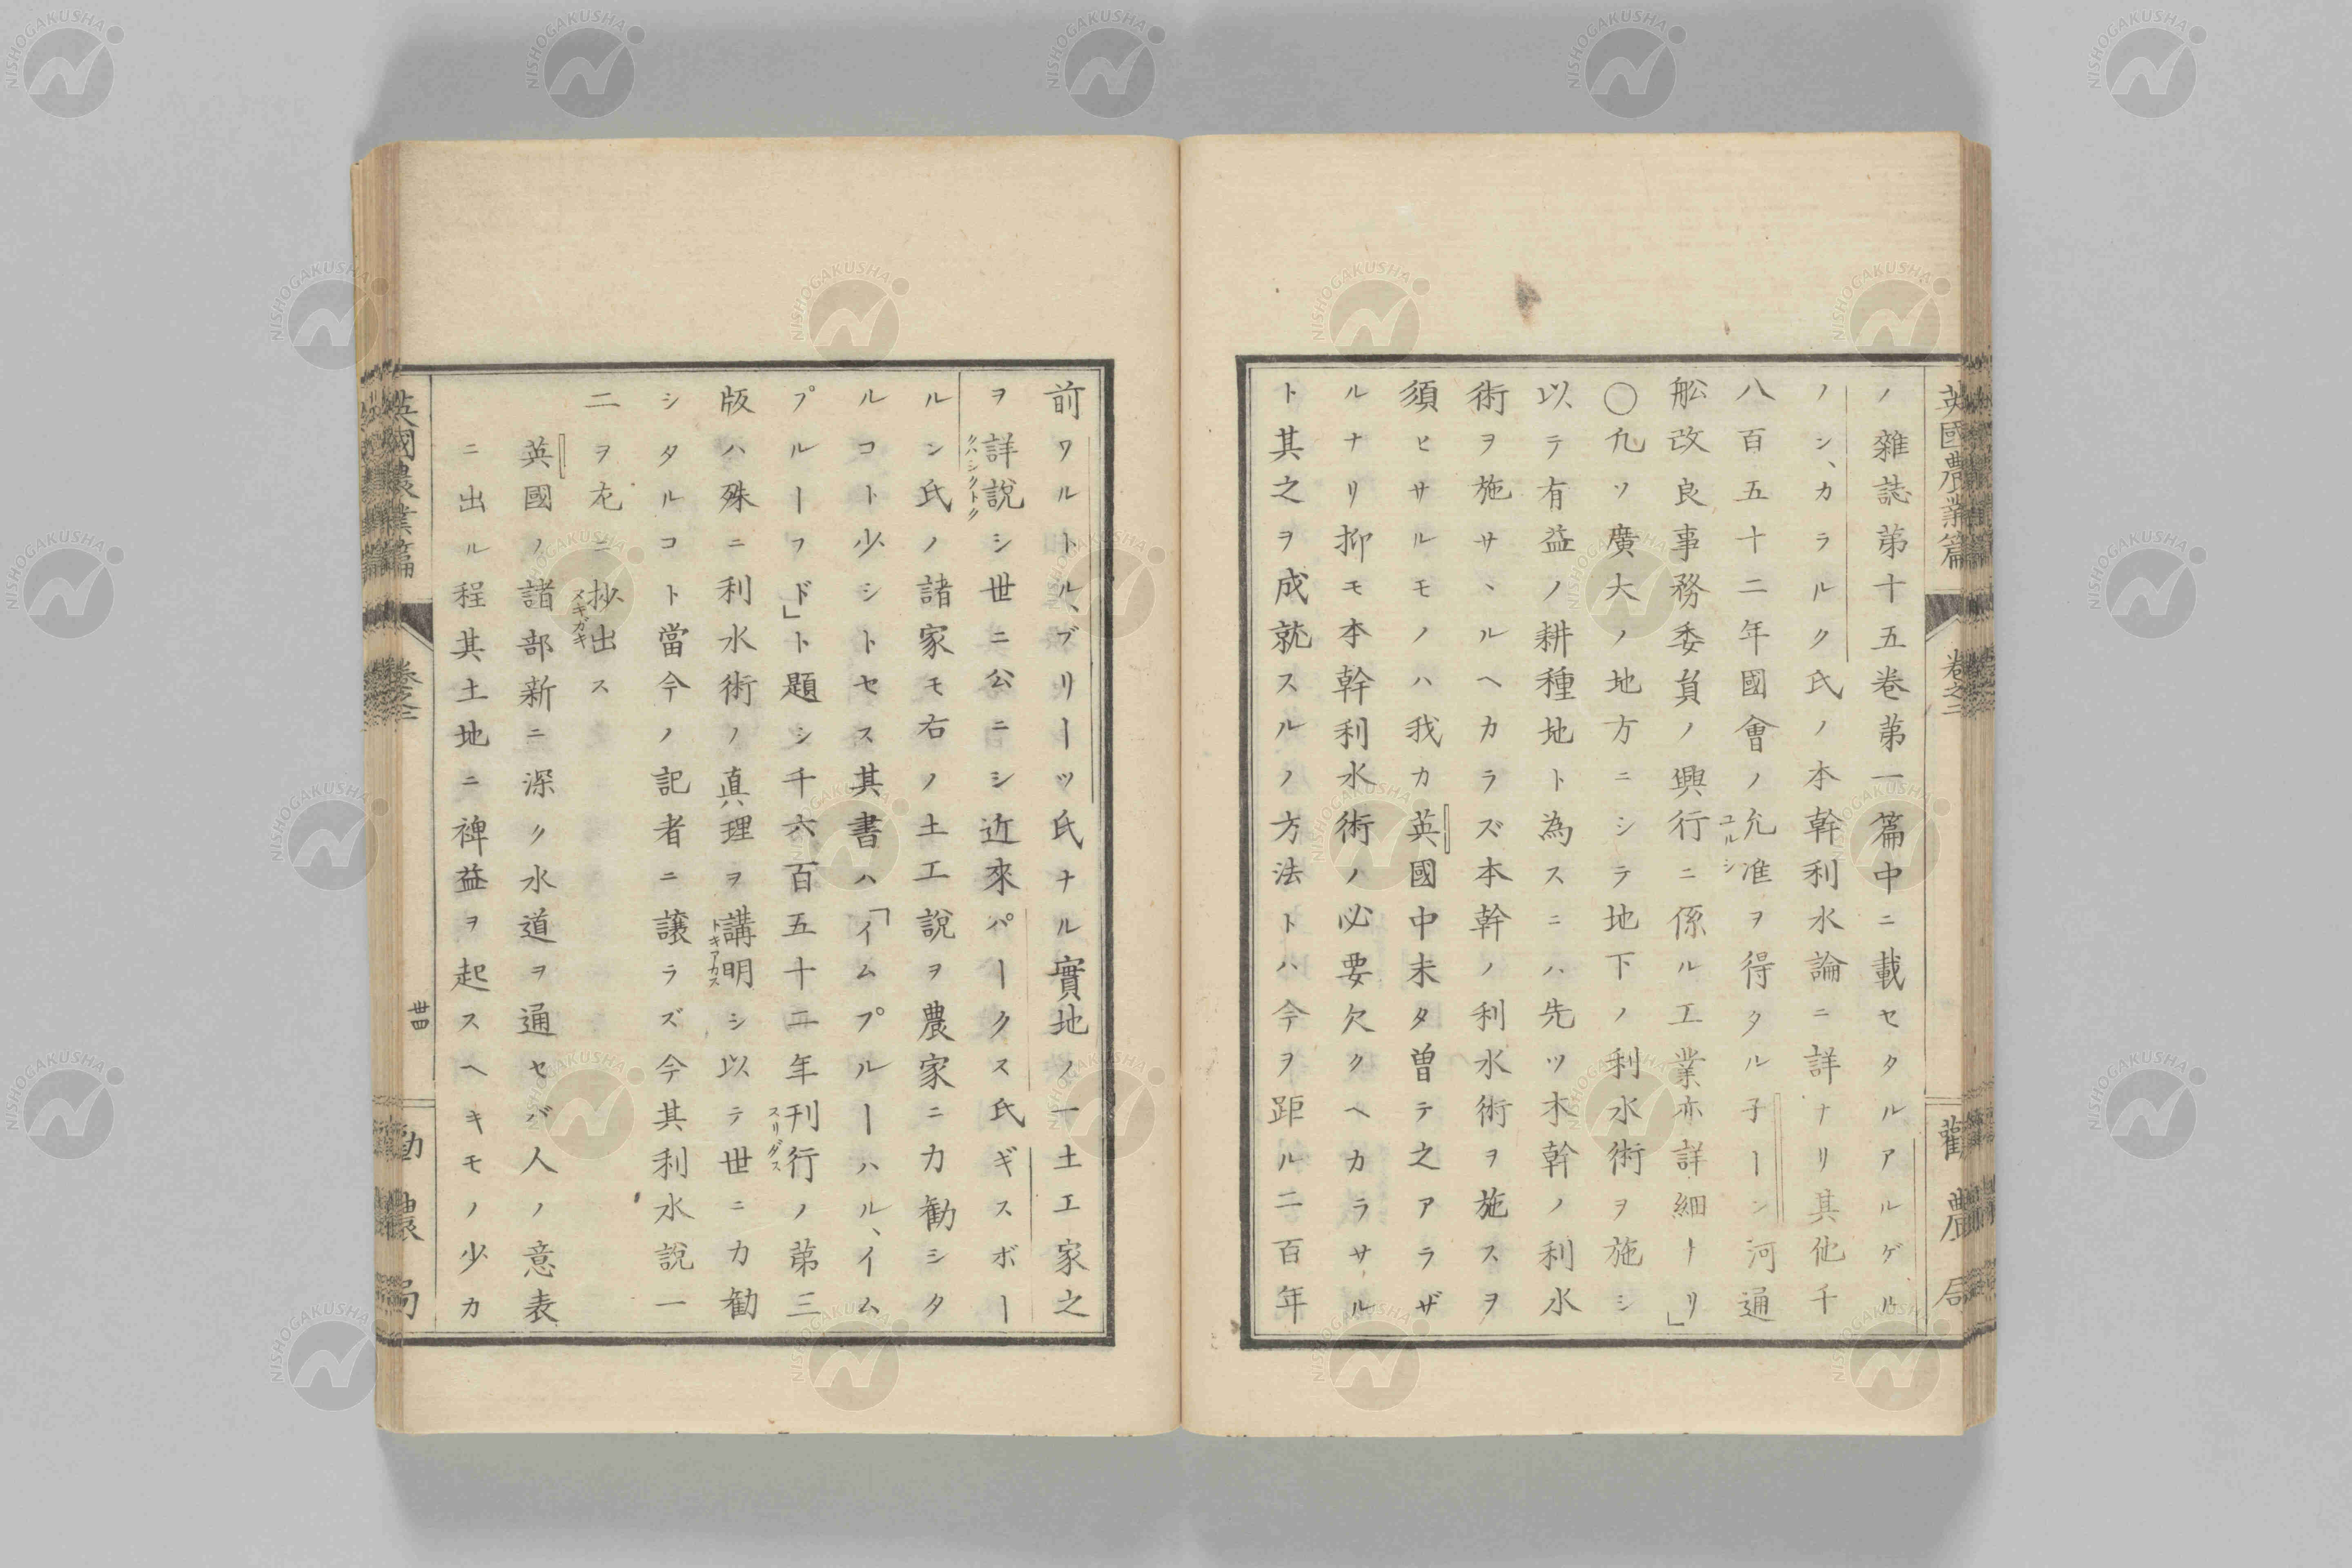 ノ雜誌第十五卷第一篇中ニ載セタルアルゲル
ノシ、カラルク氏ノ本幹利水論ニ詳ナリ其他千
八百五十二年國會ノ允准ヲ得タル子ーン河通
ユルシ
舩改良事務委員ノ興行ニ係ル工業亦詳細トリ」
〇凢ソ廣大ノ地方ニシラ地下ノ利水術ヲ施シ
以テ有益ノ耕種地ト為スニハ先ツ木幹ノ利水
術ヲ施サヽルヘカラズ本幹ノ利水術ヲ施スヲ
須ヒサルモノハ我カ英國中未タ曽テ之アラザ
ルナリ抑モ本幹利水術ノ必要欠クヘカラサル
ト其之ヲ成就スルノ方法トハ今ヲ距ル二百年
英國農業篇
卷之二
勸農局
前ワルトル、ブリーッ氏ナル實地ノ一土工家之
ヲ詳說シ世ニ公ニシ近來パークス氏ギスボー
クハシクトク
ルン氏ノ諸家モ右ノ土工說ヲ農家ニ力勧シタ
ルコト少シトセス其書ハ「イムプルーハル、イム
プルーフド」ト題シ千六百五十二年刊行ノ第三
スリダス
版ハ殊ニ利水術ノ真理ヲ講明シ以テ世ニカ勧
トキアカス
シタルコト當今ノ記者ニ譲ラズ今其利水說一
二ヲ左ニ抄出ス
ヌキガキ
英國ノ諸部新ニ深ク水道ヲ通セバ人ノ意表
ニ出ル程其土地ニ裨益ヲ起スヘキモノ少カ
英國農業篇
卷之二
廿四
勸農局
NISHOGAKUSHA